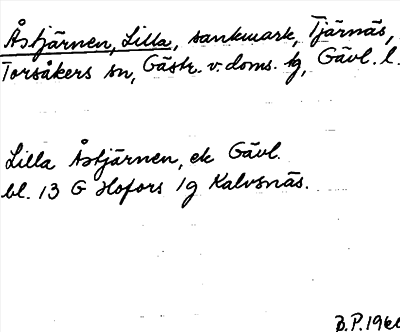 Åstjärnen, Lilla, sankmark, Tjärnäs,
Torsåkers sn, Gästr. v. doms. tg, Gävl. l.
Lilla Åstjärnen, ek Gävl.
bl. 13 G Hofors 1g Kalvsnäs.
B.P. 196